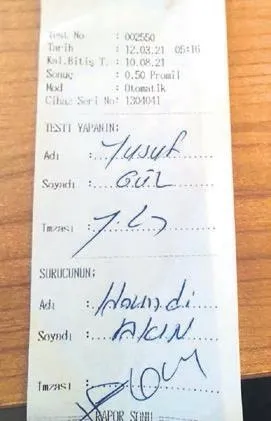 Test No : 002550
Tarih : 12.03.21 05:16
Kal.Bitiş T. : 10.08.21
Sonuç : 0.50 Promil
Mod : Otomatik
Cihaz Seri No: 1304041
TESTİ YAPANIN:
Adı :....Yusuf
Soyadı :....GÜL
İmzası :
SÜRÜCÜNÜN:
Adı :..Hamdi
Soyadı :....AKIN
İmzası :
RAPOR SONU